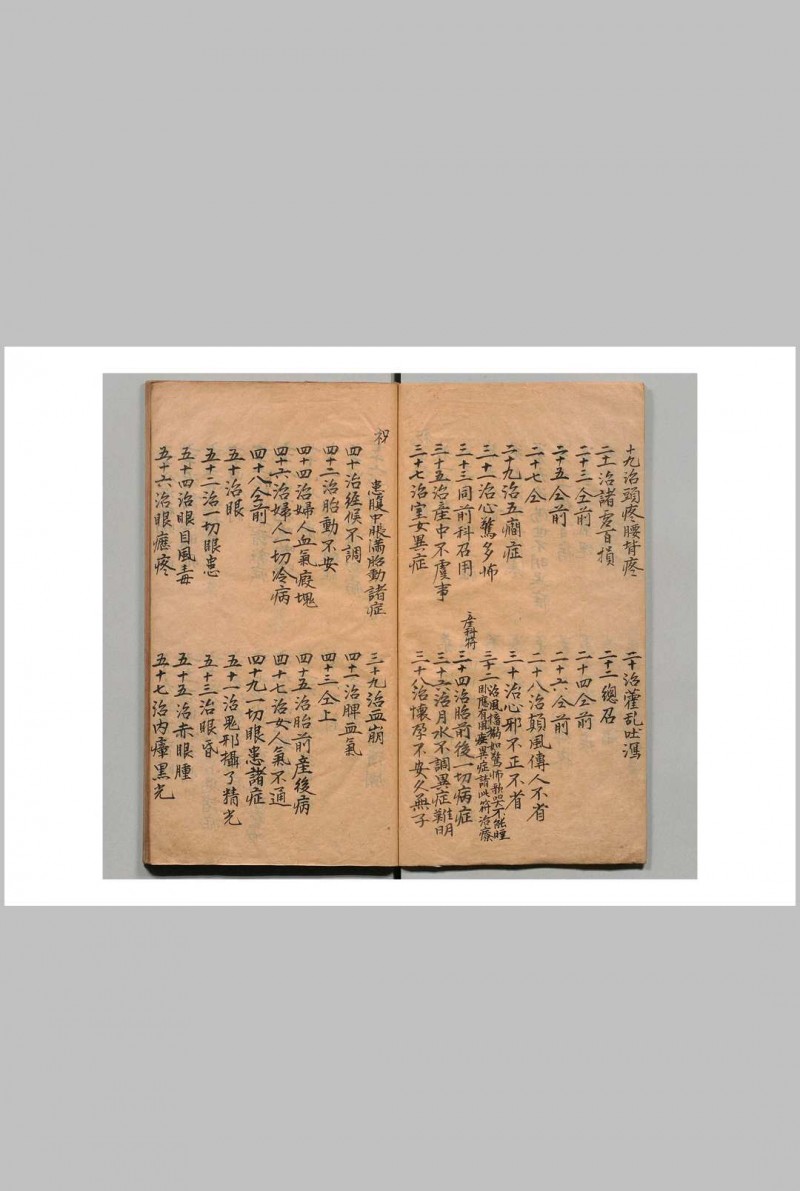 十九治頭疼腰背疼
二十治藿乱吐瀉
二十一治諸虗百損
二十二總召
二十三仝前
二十四仝前
二十五仝前
二十六仝前
二十七仝
二十八治顛風傳人不省
二十九治五癇症
三十治心邪不正不省
三十一治心驚多怖
三十二治風搐搦如驚怖歌哭不能睡
即應有風痰異症請此符治療
三十三同前科召用
産科符
三十四治胎前後一切病症
三十五治産中不虞事
三十六治月水不調異症難明
三十七治室女異症
三十八治懷孕不安久無子
患腹中脹滿胎動諸症
三十九治血崩
四十治經候不調
四十一治脾血氣
四十二治胎動不安
四十三仝上
四十四治婦人血氣癥塊
四十五治胎前産後病
四十六治婦人一切冷病
四十七治女人氣不通
四十八仝前
四十九一切眼患諸症
五十治眼
五十一治鬼邪攝了精光
五十二治一切眼患
五十三治眼昏
五十四治眼目風毒
五十五治赤眼腫
五十六治眼癮疼
五十七治内瘴黑光